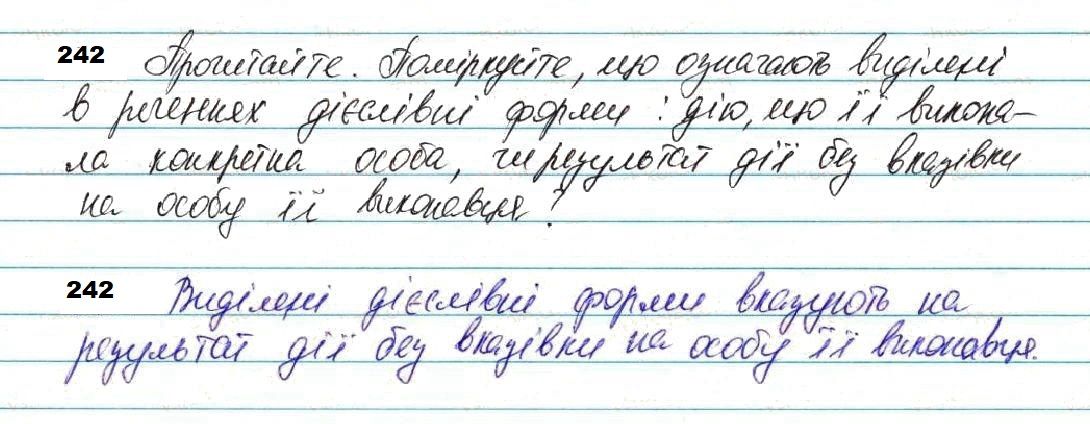 242 Прочитайте. Поміркуйте, що означають виділені
в реченнях дієслівні форми : дію, що її викона-
ла конкретна особа, чи результат дії без вказівки
на особу її виконавця?
242 Виділені дієслівні форми вказують на
результат дії без вказівки на особу її виконавця.